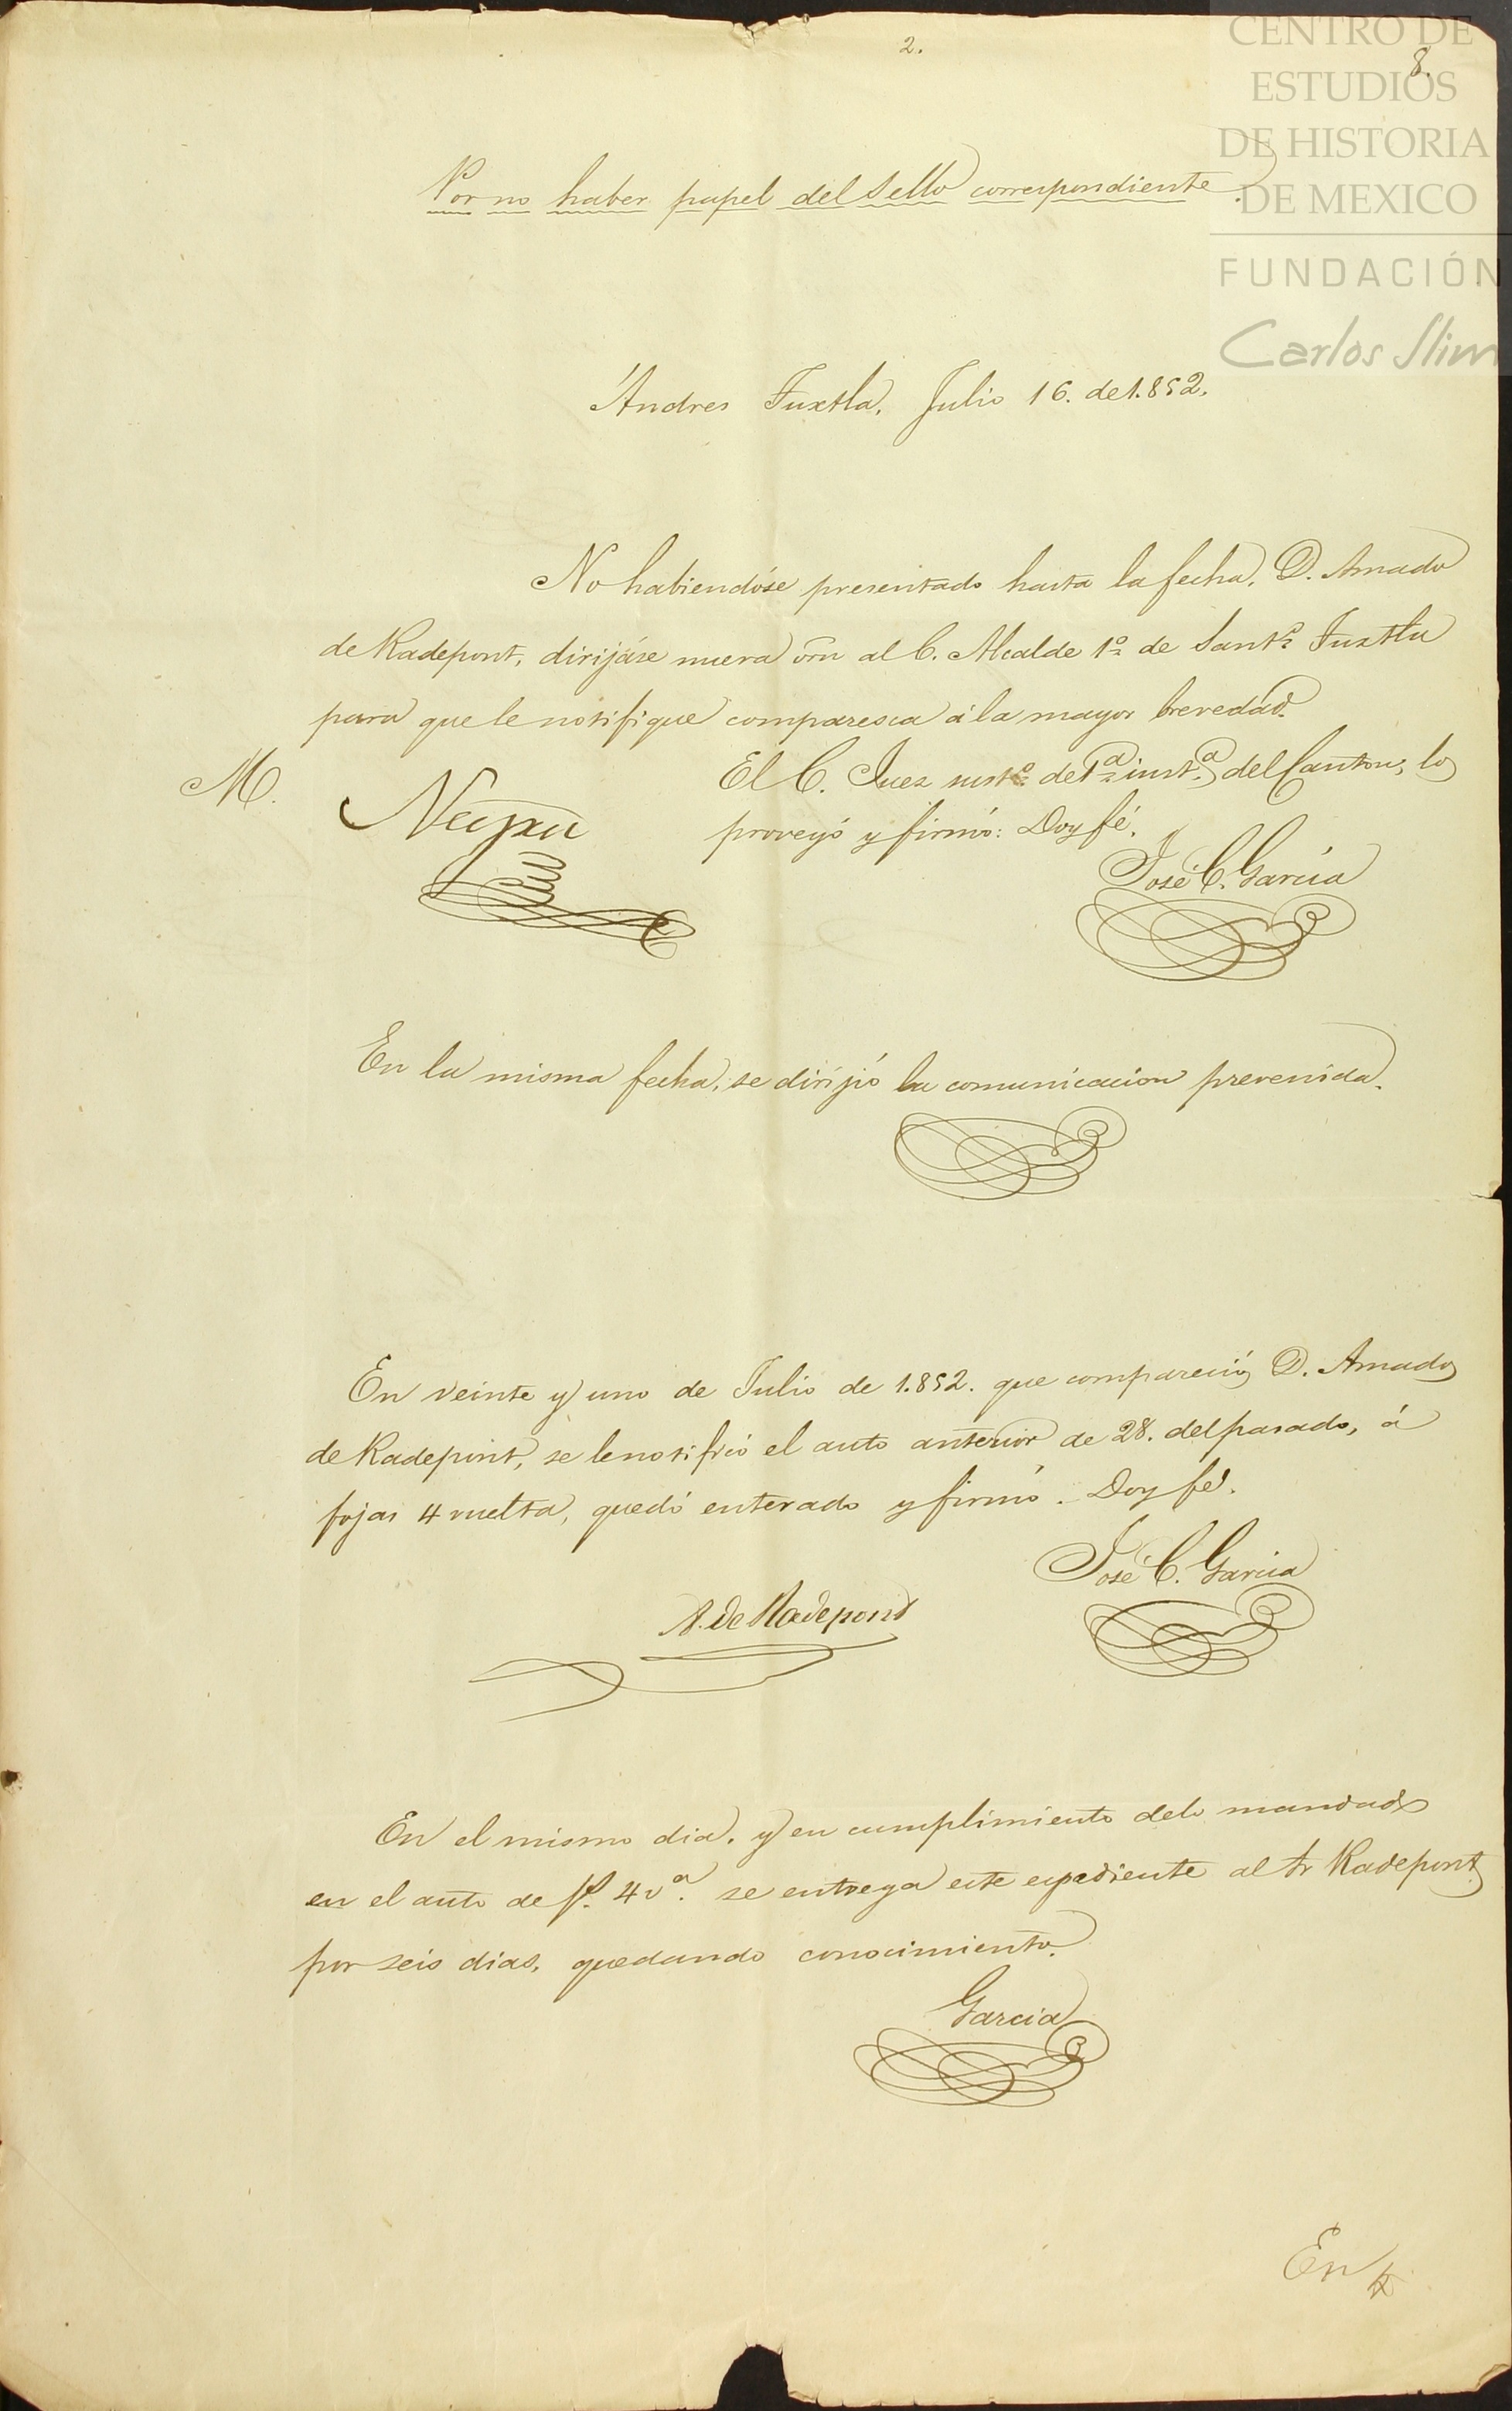 2.
8.
CENTRO DE
ESTUDIOS
DE HISTORIA
DE MEXICO
FUNDACIÓN
Carlos Slim
Por no haber papel del Sello correspondiente.
Andres Tuxtla, Julio 16. de 1.852.
No habiendóse presentado hasta la fecha, D. Amado
de Radepont, dirijáse nueva orn al C. Alcalde 1º de Santº Tuxtla
para que le notifique comparesca á la mayor brevedad.
El C. Juez sustº de 1ª instª del Canton, lo
proveyó y firmó: Doy fé.
M.
José C. García
En la misma fecha, se dirijió la comunicacion prevenida.
En veinte y uno de Julio de 1.852. que compareció D. Amado
de Radepont, se le notificó el auto anterior de 28. del pasado, á
fojas 4 vuelta, quedó enterado y firmó. Doy fé.
José C. García
A. de Radepont
En el mismo dia, y en cumplimiento de lo mandado
en el auto de f. 4 vª. se entrega este espediente al Sr Radepont
por seis dias, quedando conocimiento.
Garcia
En